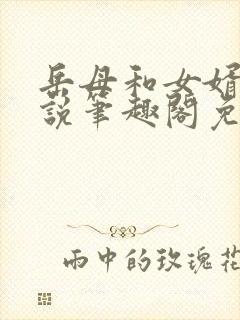 岳母和女婿
说笔趣阁免
雨中的玫瑰花